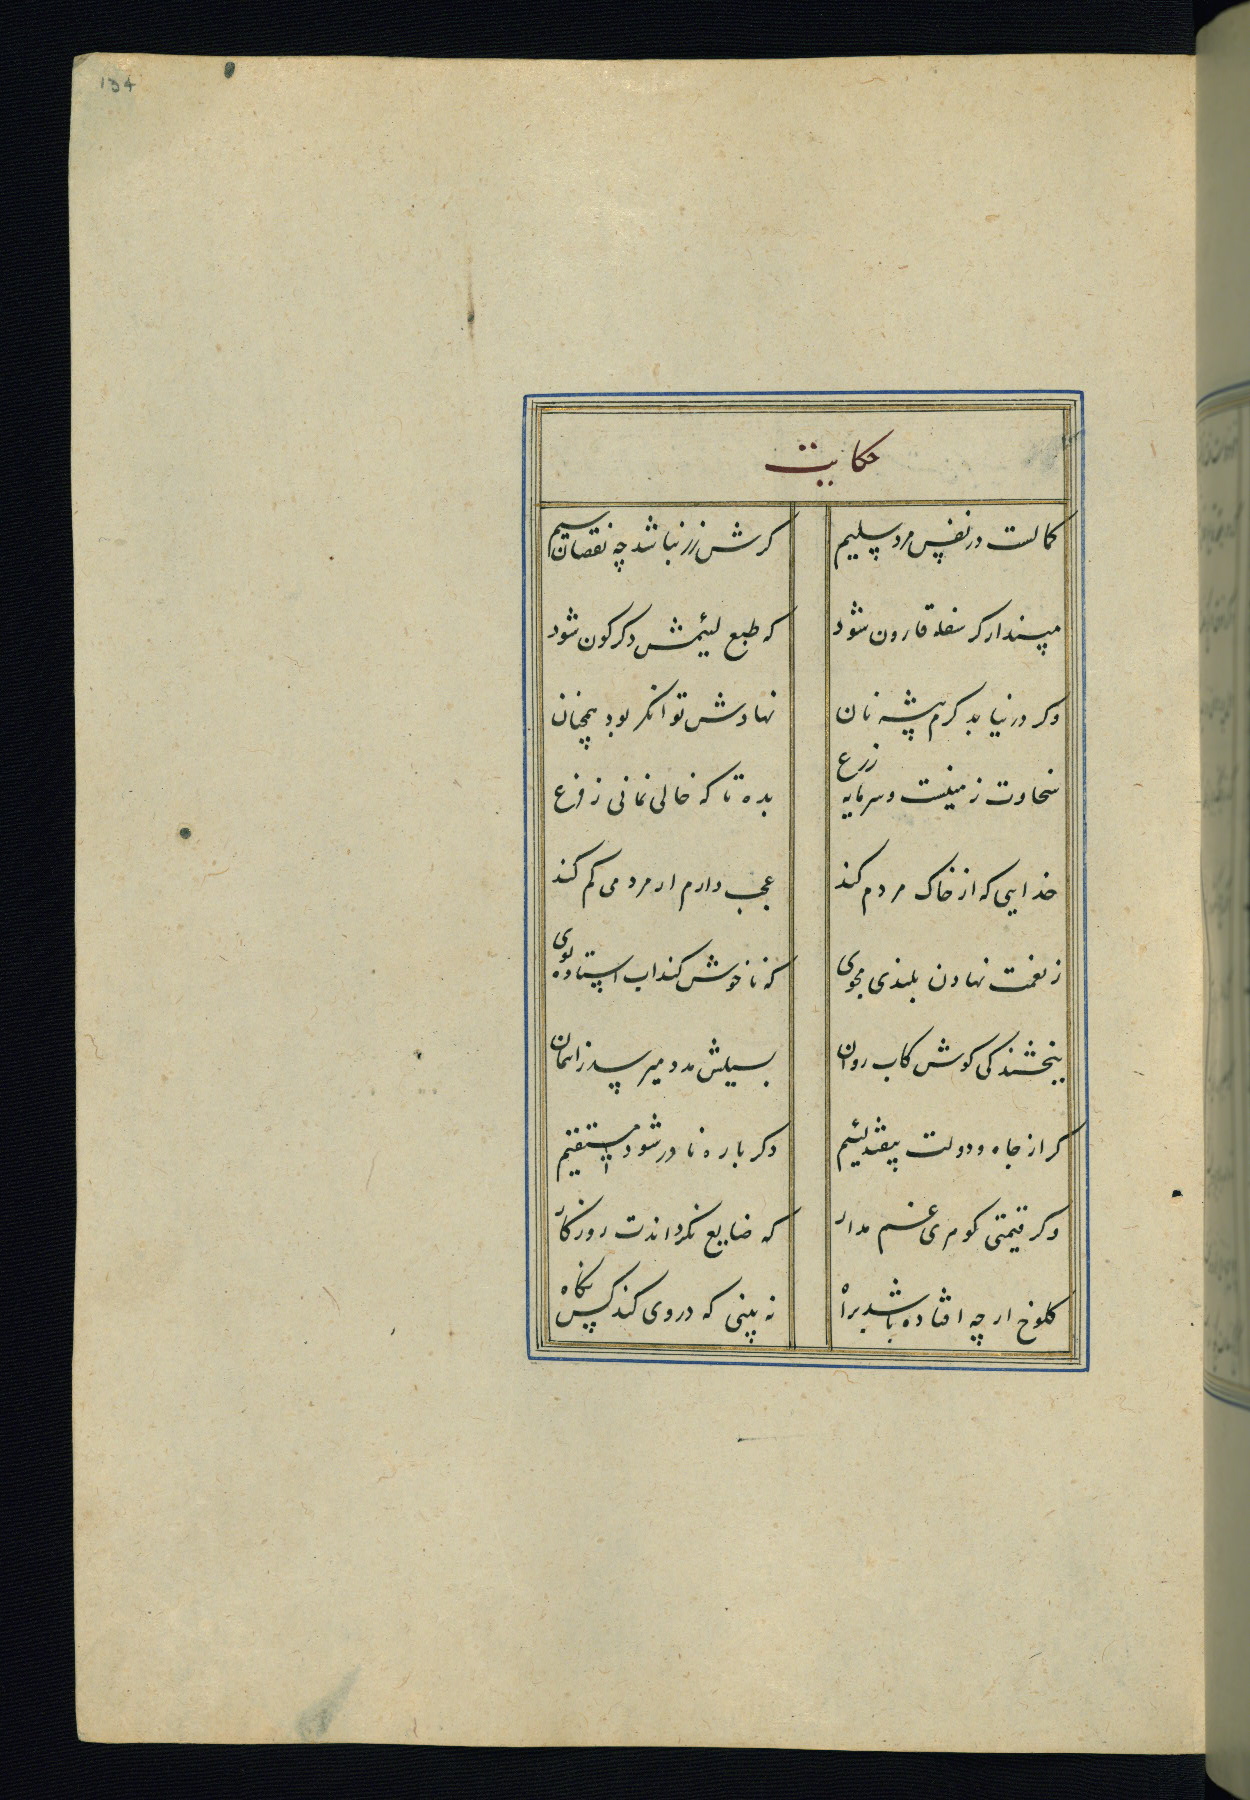 134
حکایت
کمالست در نفس مرد سلیم کرش زر نباشد چه نقصان سیم
مپندار کر سفله قارون شود که طبع لئیمش دکرکون شود
وکر در نیابد کرم پیشه نان نهادش توانکر بود همچنان
سخاوت زمینست و سرمایه زرع بده تا که خالی نمانی ز فرع
خدایی که از خاک مردم کند عجب دارم ار مردمی کم کند
ز نعمت نهادن بلندی مجوی که ناخوش کند اب استاده بوی
ببخشندکی کوش کاب روان بسیلش مدد میرسد ز اسمان
کر از جاه و دولت بیفتد لئیم دکر باره نادر شود مستقیم
وکر قیمتی کوهری غم مدار که ضایع نکرداندت روزکار
کلوخ ار چه افتاده باشد براه نه بینی که در وی کند کس نکاه